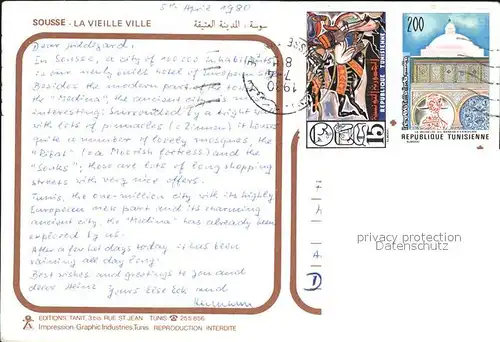 5th April 1980
SOUSSE - LA VIEILLE VILLE
سوسة - المدينة العتيقة
Dear Hildegard.
In Sousse, a city of 100 000 inhabitants
is our newly builed hotel of European style.
Besides the modern part of the town
the "Medina", the ancient city is most
interesting. Surrounded by a bright wall
with lots of pinnacles (= Zinnen) it houses
quite a number of lovely mosques, the
"Ribat" (= a Moorish fortress) and the
"Souks"; these are lots of long shopping
streets with very nice offers.
Tunis, the one-million city with its highly
European new part and its charming
ancient city, the "Medina" has already been
explored by us.
After a few hot days today it has been
raining all day long.
Best wishes and greetings to you and
dear Heinz Yours Else Eck and
Hermann
EDITIONS TANIT, 3 bis RUE ST JEAN TUNIS ☎ 255 656
Impression Graphic.Industries.Tunis REPRODUCTION INTERDITE
1980
REPUBLIQUE TUNISIENNE
15
200
REPUBLIQUE TUNISIENNE
privacy protection
Datenschutz